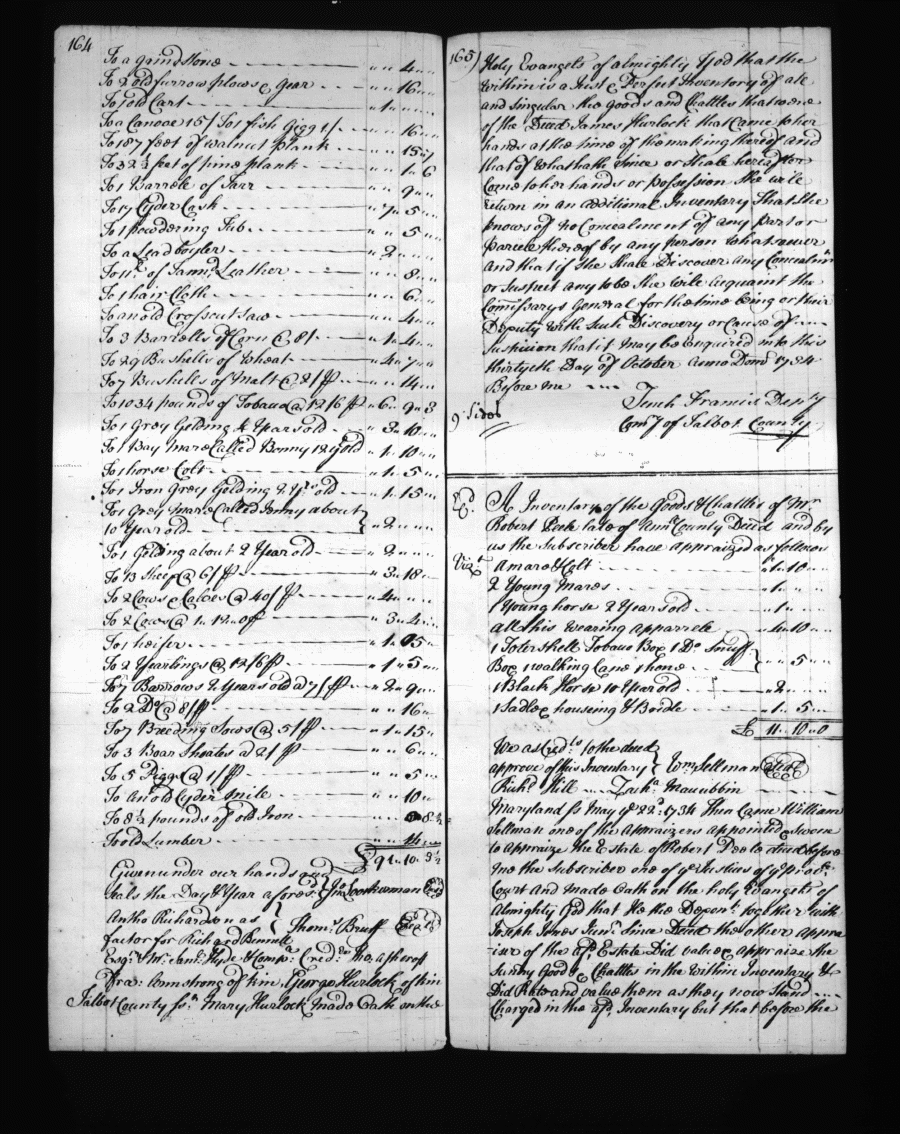 164
To a grindstone - - - " " 4 " "
To 2 old furrow plows & gear - - " " 16 " "
To 1 old Cart - - - " 1 " " "
To a Canoe 15/ To 1 fish Gigg 1/ - - " " 16 " "
To 187 feet of walnut plank - - " " 15 " 7
To 32 1/2 feet of pine plank - - " " 1 " 6
To 1 Barrele of Tarr - - " " 9 " "
To 17 Cyder Cask - - " 7 " 5 " "
To 1 powdering Tub - - " " 5 " "
To a Lead boyler - - " 2 " " "
To 11 lb of Tann'd Leather - - " " 8 " "
To 1 hair Cloth - - " " 6 " "
To an old Crosscut saw - - " " 4 " "
To 3 Barrells of Corn @ 8/ - - " 1 " 4 " "
To 29 Bushells of Wheat - - " 4 " 7 " "
To 7 Bushells of Malt @ 2/ P - - " " 14 " "
To 1034 pounds of Tobacco @ 12/6 P " 6 " 9 " 3
To 1 Grey Gelding 4 Years old - - " 3 " 10 " "
To 1 Bay Mare Called Bonny 12 Y old " 1 " 10 " "
To 1 horse Colt - - " 1 " 5 " "
To 1 Iron Grey Gelding 2 Yrs old - " 1 " 15 " "
To 1 Grey Mare Called Jenny about
10 Year old - - " 2 " " "
To 1 Gelding about 2 Year old - " 2 " " "
To 13 Sheep @ 6/ P - - " 3 " 18 " "
To 2 Cows & Calves @ 40/ P - " 4 " " "
To 2 Cows @ 1 " 12 " 0 P - " 3 " 4 " "
To 1 heifer - - " 1 " 5 " "
To 2 Yearlings @ 12/6 P - " 1 " 5 " "
To 7 Barrows 2 Years old @ 7/ P - " 2 " 9 " "
To 2 Do @ 8/ P - - " " 16 " "
To 7 Breeding Sows @ 5/ P - " 1 " 15 " "
To 3 Boar Shoates @ 2/ P - " " 6 " "
To 5 Piggs @ 1/ P - - " " 5 " "
To An old Cyder Mile - - " " 10 " "
To 8 1/2 pounds of old Iron - - 8 1/2
To old Lumber - - " " 14 " "
£ 91 " 10 " 3 1/2
Given under our hands and
Seals the Day & Year aforesd } Jno Lookerman Seal
Antho Richardson as
factor for Richard Bennett } Thoms Bruff Seal
Esqr & Mr Saml Hyde & Compa Credrs
Fra: Armstrong of kin, George Hurlock of kin
Talbot County ss Mary Hurlock made Oath on the
165
Holy Evangels of almighty God that the
within is a Just & Perfect Inventory of all
and Singular the goods and Chattles that were
of the Deced James Hurlock that Came to her
hands at the time of the making thereof and
that of what hath Since or Shale hereafter
Come to her hands or possession She will
return in an additional Inventory That she
knows of no Concealment of any part or
parcele thereof by any person whatsoever
and that if she Shale Discover any Concealmt
or Suspect any to be She will acquaint the
Comissarys General for the time being or their
Deputy with Such Discovery or Cause of
Suspicion that it may be enquired into this
thirtyeth Day of October Anno Dom 1734
Before me - - Tench Francis Depty
9 Sides Comy of Talbot County
Ex. A Inventory of the Goods & Chattles of Mr
Robert Peele late of Ann County Deced and by
us the Subscriber have appraized as followes
Vizt a mare & Colt - - " 1 " 10 " "
2 Young Mares - - " 1 " " "
1 Young horse 2 Years old - " 1 " " "
all his wearing apparrele - " 4 " 10 " "
1 Toter shelle Tobacco Box 1 Do Snuff
Box 1 walking Cane 1 hone - " " 5 " "
1 Black Horse 10 Year old - " 2 " " "
1 Sadle & houseing & Bridle - " 1 " 5 " "
£ 11 " 10 " 0
We as Credrs to the deced
approve of this Inventory } Wm Sellman Seal
Richd Hill - - Zachh Maccubbin - -
Maryland ss May ye 22d 1734 Then Came William
Sellman one of the Appraizers appointed & Sworn
to appraize the Estate of Robert Peele deced before
me the Subscriber one of ye Justices of ye Provl
Court and made Oath on the holy Evangels of
Almighty God that He the Deponent together with
Joseph Jones Junr Since Deced the other appra
izer of the afd Estate Did value & appraize the
Sundry Goods & Chattles in the within Inventory &
Did Rate and value them as they now Stand
Charged in the afd Inventory but that before the